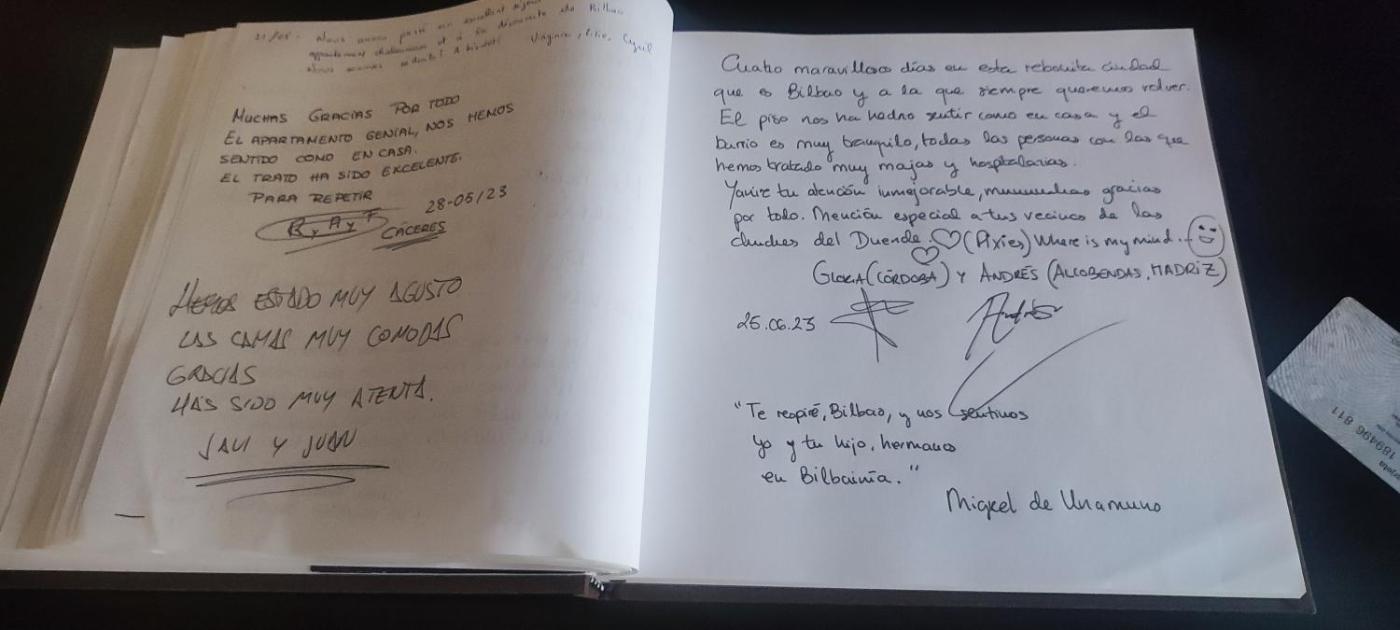 21/05. Nous avons passé un excellent séjour
appartement chaleureux et à la découverte de Bilbao
Nous sommes
Virginie, Cyril
MUCHAS GRACIAS POR TODO
EL APARTAMENTO GENIAL, NOS HEMOS
SENTIDO COMO EN CASA.
EL TRATO HA SIDO EXCELENTE.
PARA REPETIR
28-05/23
R, A y F
CÁCERES
HEMOS ESTADO MUY AGUSTO
LAS CAMAS MUY COMODAS
GRACIAS
HAS SIDO MUY ATENTA.
JAVI Y JUAN
Cuatro maravillosos días en esta rebonita ciudad
que es Bilbao y a la que siempre queremos volver.
El piso nos ha hecho sentir como en casa y el
barrio es muy tranquilo, todas las personas con las que
hemos tratado muy majas y hospitalarias.
Yanire tu atención inmejorable, muuuuchas gracias
por todo. Mención especial a tus vecinos de las
chuches del Duende. (Pixies) Where is my mind..
GLORIA (CÓRDOBA) Y ANDRÉS (ALCOBENDAS, MADRIZ)
25.06.23
Andrés
"Te respiré, Bilbao, y nos sentimos
yo y tu hijo, hermanos
en Bilbainía."
Migel de Unamuno
189496 811